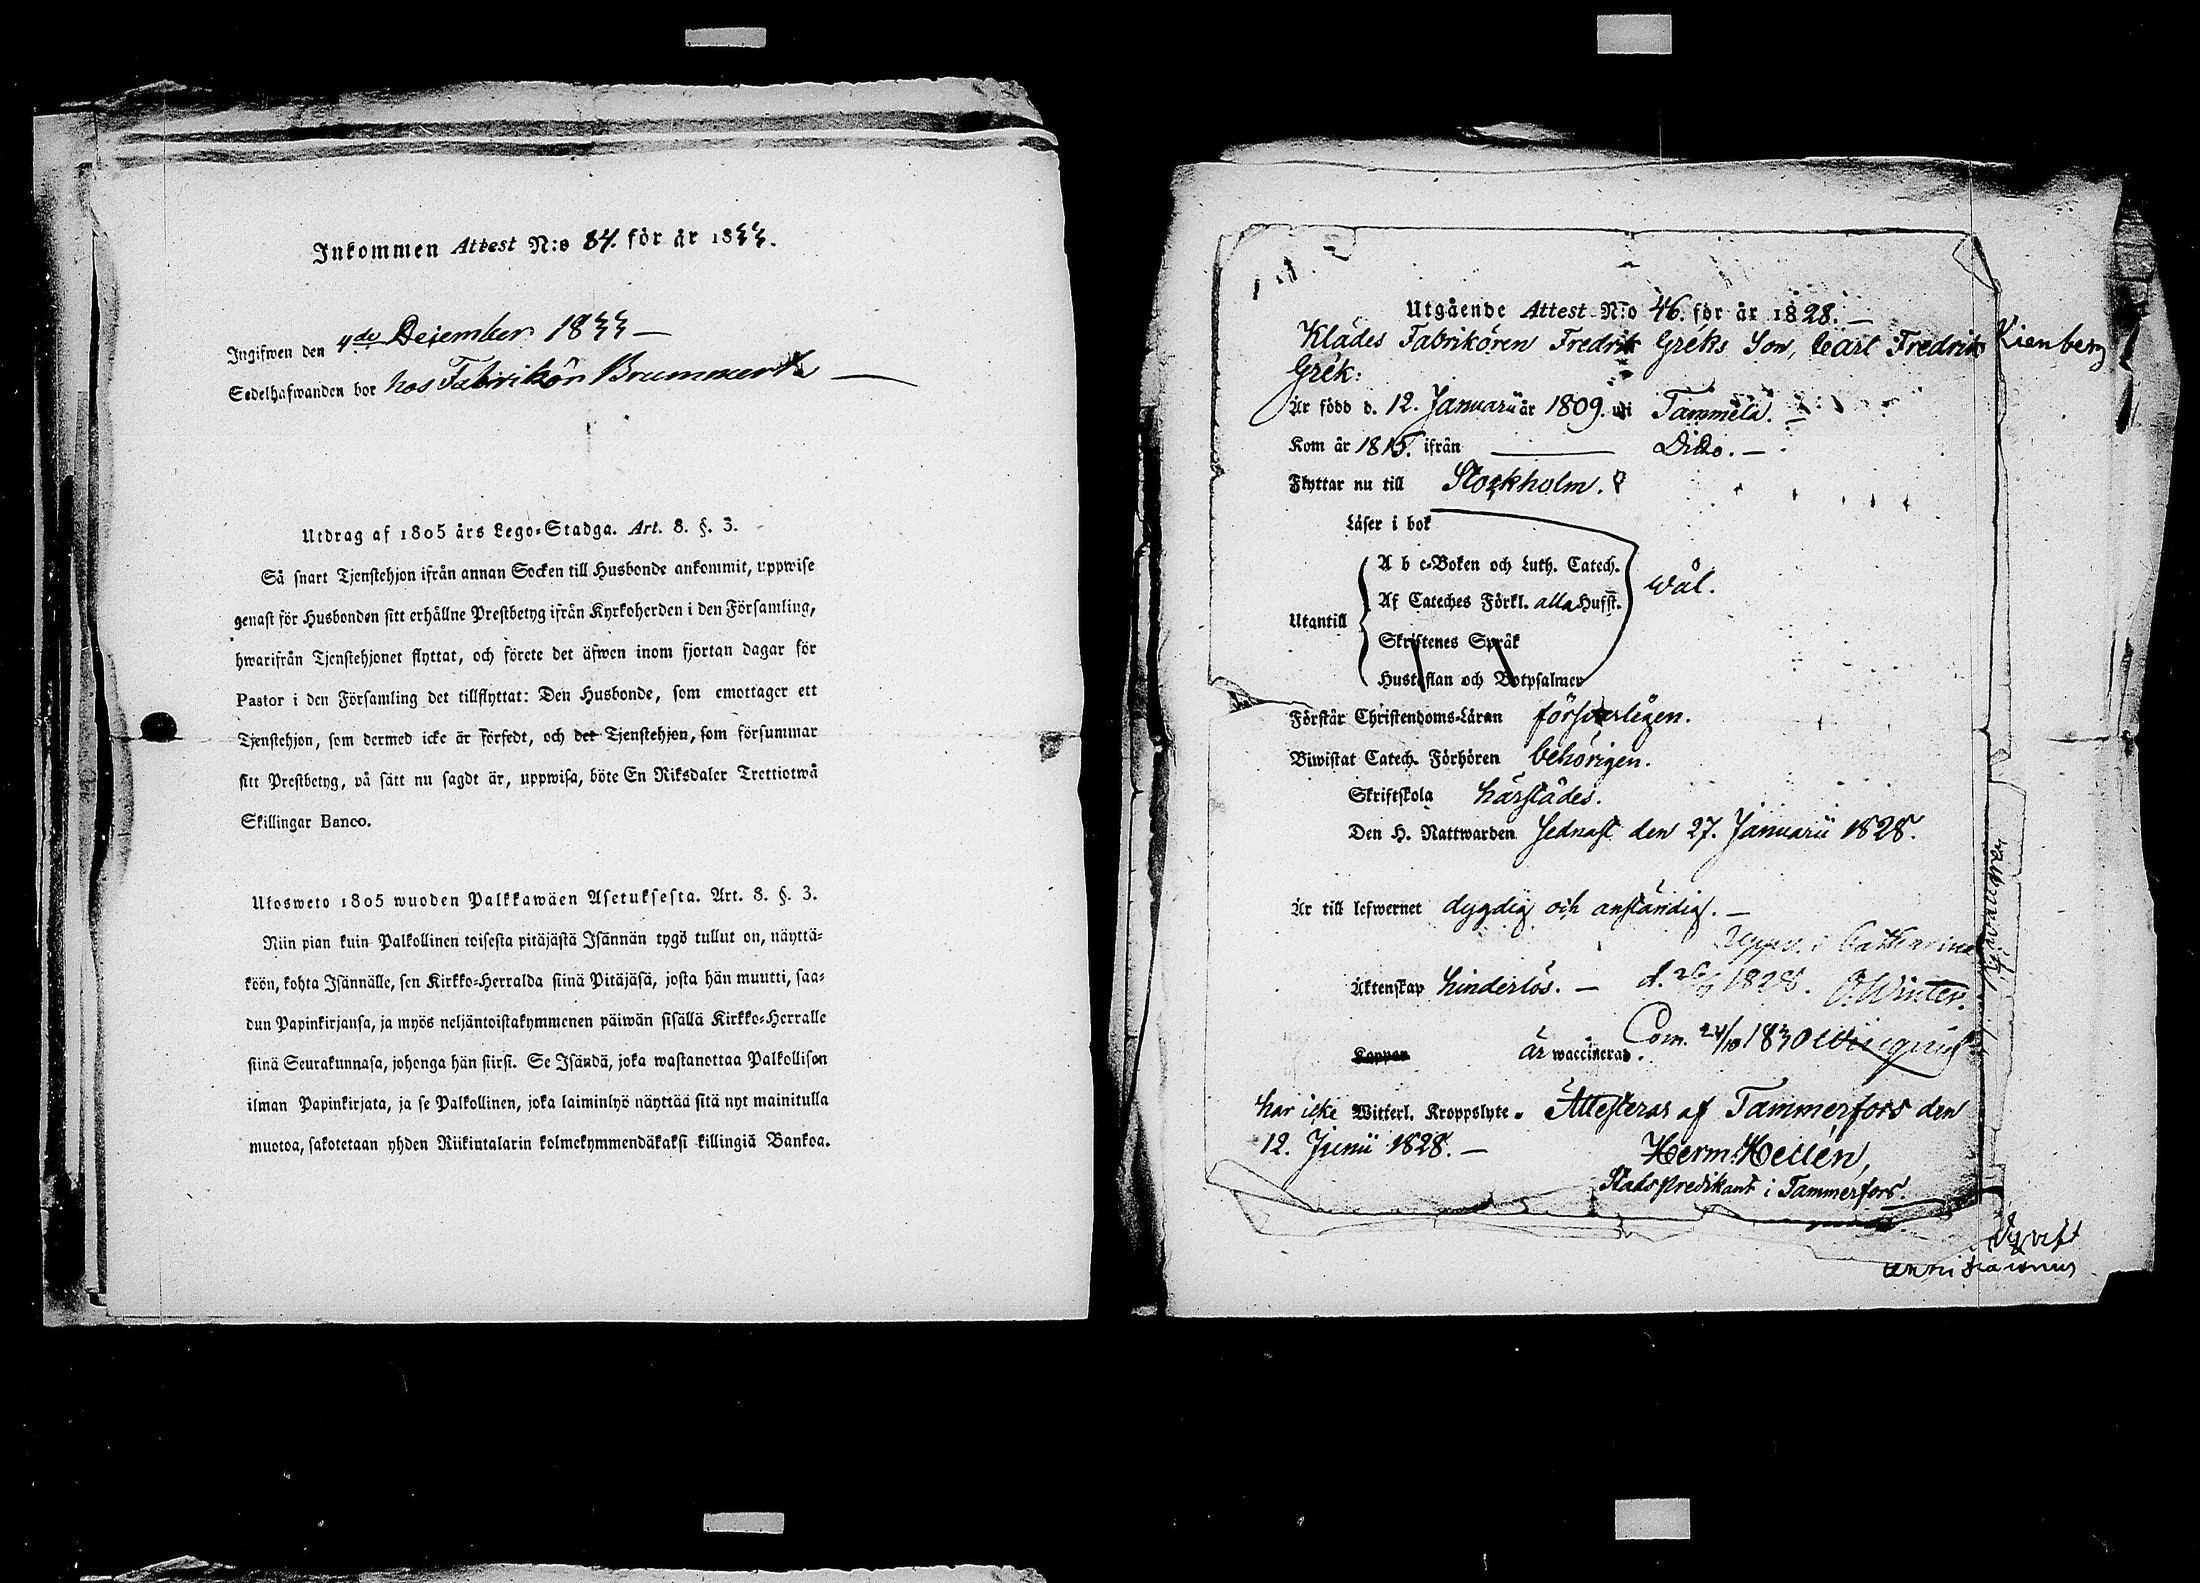 Inkommen Attest N:o 84. för år 1833.
Ingifwen den 4de December 1833 —
Sedelhafwanden bor hos Fabrikör Brummer
Utdrag af 1805 års Lego-Stadga. Art. 8. §. 3.
Så snart Tjenstehjon ifrån annan Socken till Husbonde ankommit, uppwise
genast för Husbonden sitt erhållne Prestbetyg ifrån Kyrkoherden i den Församling,
hwarifrån Tjenstehjonet flyttat, och förete det äfwen inom fjortan dagar för
Pastor i den Församling det tillflyttat: Den Husbonde, som emottager ett
Tjenstehjon, som dermed icke är försedt, och det Tjenstehjon, som försummar
sitt Prestbetyg, på sätt nu sagdt är, uppwisa, böte En Riksdaler Trettiotwå
Skillingar Banco.
Ulosweto 1805 wuoden Palkkawäen Asetuksesta. Art. 8. §. 3.
Niin pian kuin Palkollinen toisesta pitäjästä Isännän tygö tullut on, näyttä-
köön, kohta Isännälle, sen Kirkko-Herralda siinä Pitäjäsä, josta hän muutti, saa-
dun Papinkirjansa, ja myös neljäntoistakymmenen päiwän sisällä Kirkko-Herralle
siinä Seurakunnasa, johonga hän siirsi. Se Isändä, joka wastanottaa Palkollisen
ilman Papinkirjata, ja se Palkollinen, joka laiminlyö näyttää sitä nyt mainitulla
muotoa, sakotetaan yhden Riikintalarin kolmekymmendäkaksi killingiä Bankoa.
Utgående Attest N:o 46. för år 1828. —
Klädes Fabrikören Fredrik Gréks Son, Carl Fredrik Kienberg
Grék:
Är född d. 12. Januarii år 1809. uti Tammela. —
Kom år 1815. ifrån — Dito. —
Flyttar nu till Stockholm.
Läser i bok
A b c-Boken och Luth. Catech.
Af Cateches Förkl. alla Hufst. wäl.
Utantill
Skriftenes Språk
Hustaflan och Botpsalmer
Förstår Christendoms-Läran försvarligen.
Biwistat Catech. Förhören behörigen.
Skriftskola härstädes.
Den H. Nattwarden sednast den 27. Januarii 1828.
Är till lefwernet dygdig och anständig. —
Upps. i Catharina
Äktenskap hinderlös. — d. 1828. O. Winter.
Com. 24/10 1830
Koppor är waccinerad.
har icke Witterl. Kroppslyte. Attesteras af Tammerfors den
12. Junii 1828. — Herm: Hellén,
Stads predikant i Tammerfors.